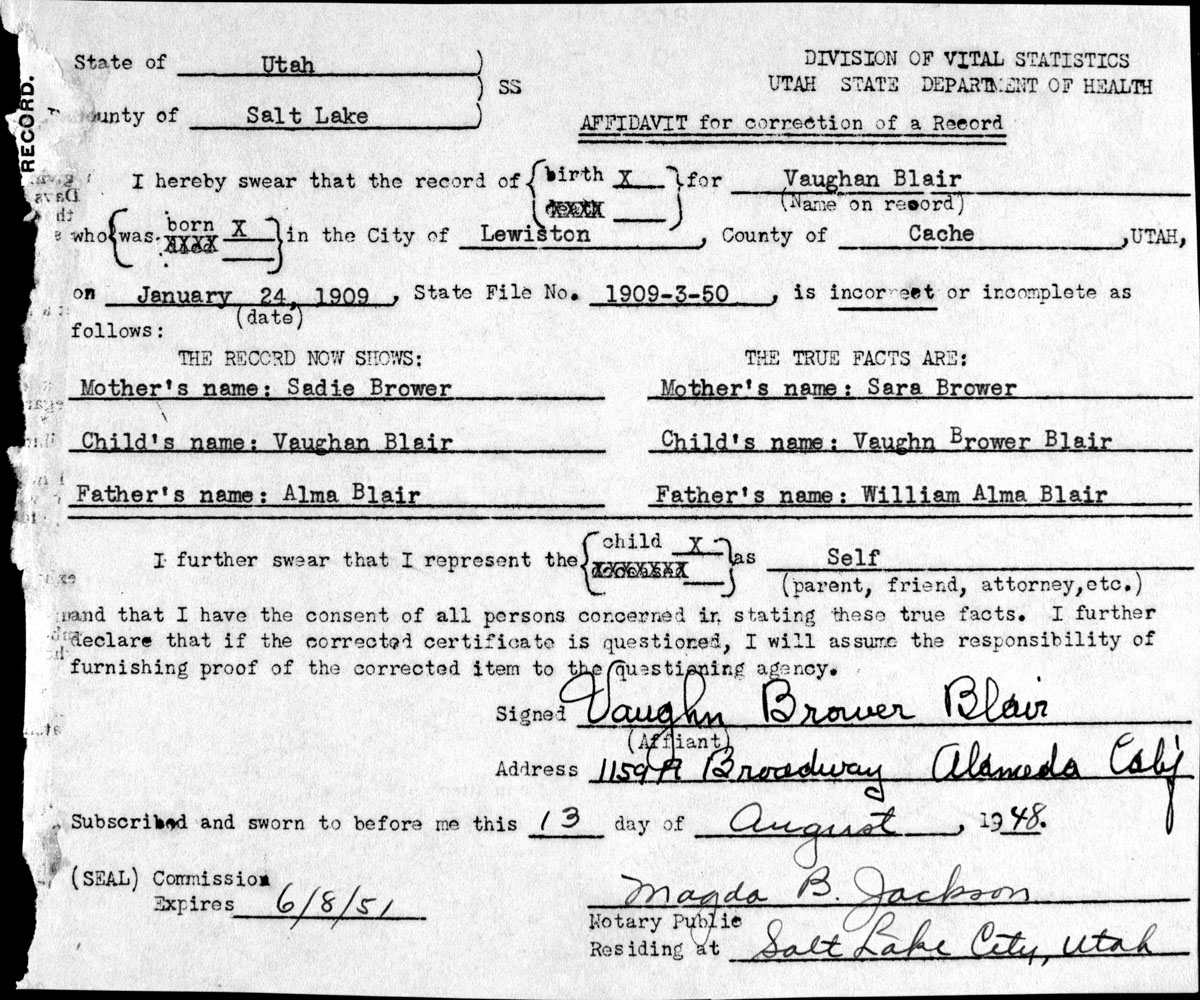 RECORD.
State of Utah ) SS
DIVISION OF VITAL STATISTICS
UTAH STATE DEPARTMENT OF HEALTH
County of Salt Lake )
AFFIDAVIT for correction of a Record
I hereby swear that the record of { birth X } for Vaughan Blair
(Name on record)
who { was born X } in the City of Lewiston, County of Cache, UTAH,
on January 24, 1909, State File No. 1909-3-50, is incorrect or incomplete as
(date)
follows:
THE RECORD NOW SHOWS: THE TRUE FACTS ARE:
Mother's name: Sadie Brower Mother's name: Sara Brower
Child's name: Vaughan Blair Child's name: Vaughn Brower Blair
Father's name: Alma Blair Father's name: William Alma Blair
I further swear that I represent the { child X } as Self
(parent, friend, attorney,etc.)
and that I have the consent of all persons concerned in stating these true facts. I further
declare that if the corrected certificate is questioned, I will assume the responsibility of
furnishing proof of the corrected item to the questioning agency.
Signed Vaughn Brower Blair
(Affiant)
Address 1159A Broadway Alameda Calif
Subscribed and sworn to before me this 13 day of August, 1948.
(SEAL) Commission
Expires 6/8/51
Magda B. Jackson
Notary Public
Residing at Salt Lake City, Utah